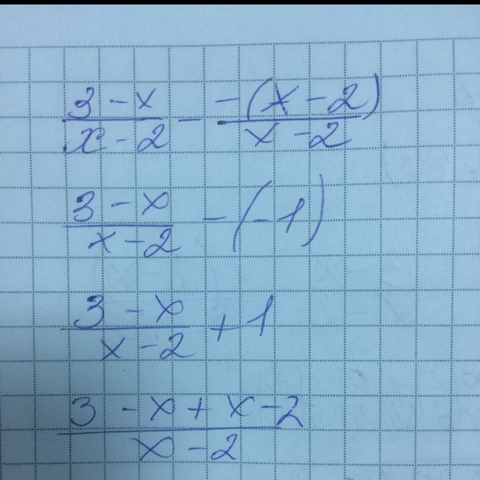 \frac{3-x}{x-2} - \frac{-(x-2)}{x-2}
\frac{3-x}{x-2} - (-1)
\frac{3-x}{x-2} + 1
\frac{3-x+x-2}{x-2}